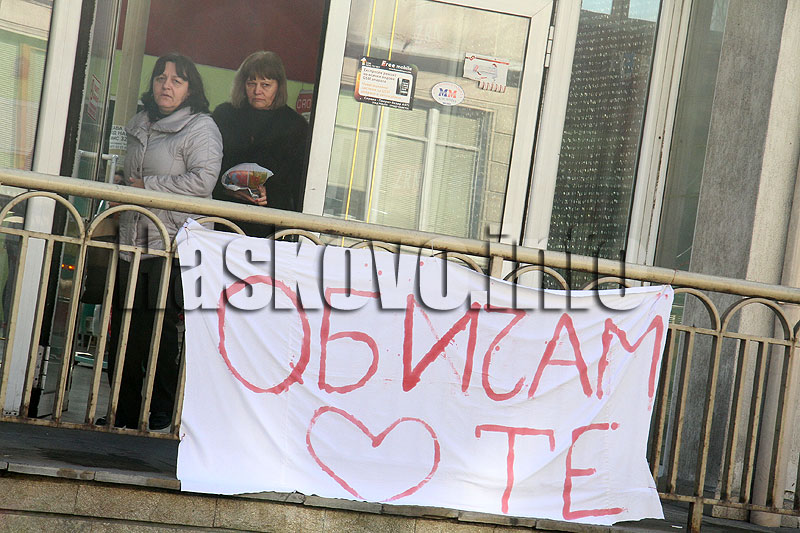 Free mobile
MM
haskovo.info
ОБИЧАМ
ТЕ